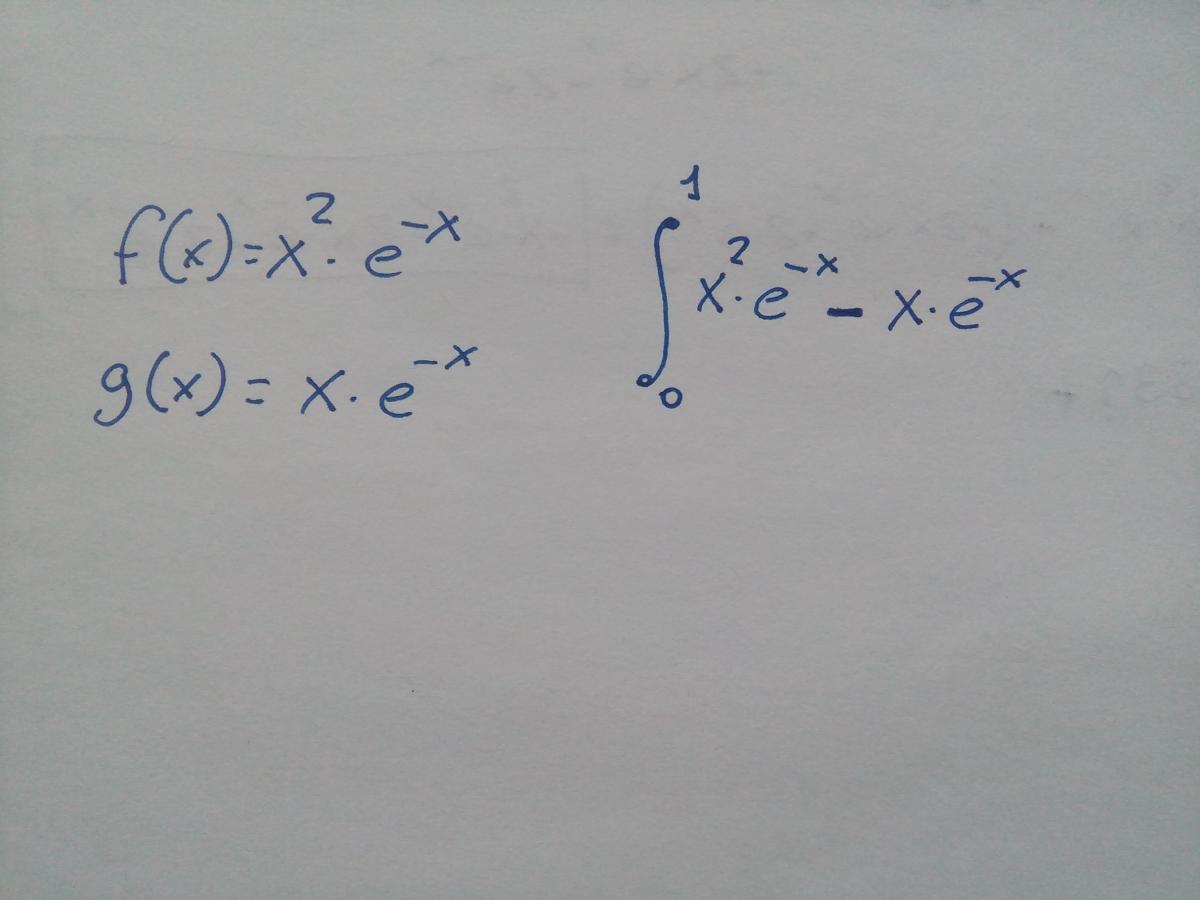 f(x)=x²·e⁻ˣ
g(x)=x·e⁻ˣ
∫₀¹ x²·e⁻ˣ - x·e⁻ˣ